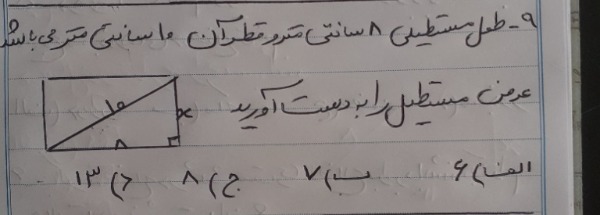 ۹- طول مستطیلی ۸ سانتی متر و قطر آن ۱۰ سانتی متر می باشد
عرض مستطیل را به دست آورید
۱۰
x
۸
الف) ۶ ب) ۷ ج) ۸ د) ۱۳